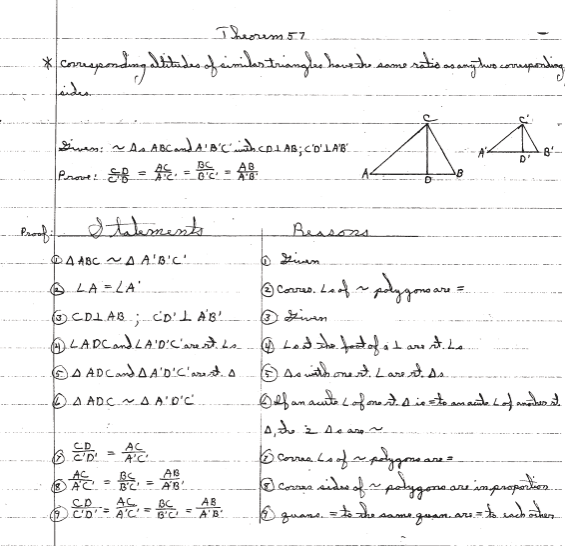 Theorem 57
* Corresponding altitudes of similar triangles have the same ratio as any two corresponding
sides.
Given: ~ Δs ABC and A'B'C' with CD⊥AB; C'D'⊥A'B'
Prove: CD/C'B = AC/A'C' = BC/B'C' = AB/A'B'
C
A D B
C'
A' D' B'
Proof: Statements Reasons
① ΔABC ~ ΔA'B'C' ① Given
② ∠A = ∠A' ② Corres. ∠s of ~ polygons are =
③ CD⊥AB ; C'D'⊥A'B' ③ Given
④ ∠ADC and ∠A'D'C' are rt. ∠s ④ ∠s at the foot of a ⊥ are rt. ∠s
⑤ ΔADC and ΔA'D'C' are rt. Δ ⑤ Δs with one rt. ∠ are rt. Δs
⑥ ΔADC ~ ΔA'D'C' ⑥ If an acute ∠ of one rt. Δ is = to an acute ∠ of another rt.
Δ, the 2 Δs are ~
⑦ CD/C'D' = AC/A'C' ⑦ Corres ∠s of ~ polygons are =
⑧ AC/A'C' = BC/B'C' = AB/A'B' ⑧ Corres sides of ~ polygons are in proportion
⑨ CD/C'D' = AC/A'C' = BC/B'C' = AB/A'B' ⑨ quans. = to the same quan. are = to each other